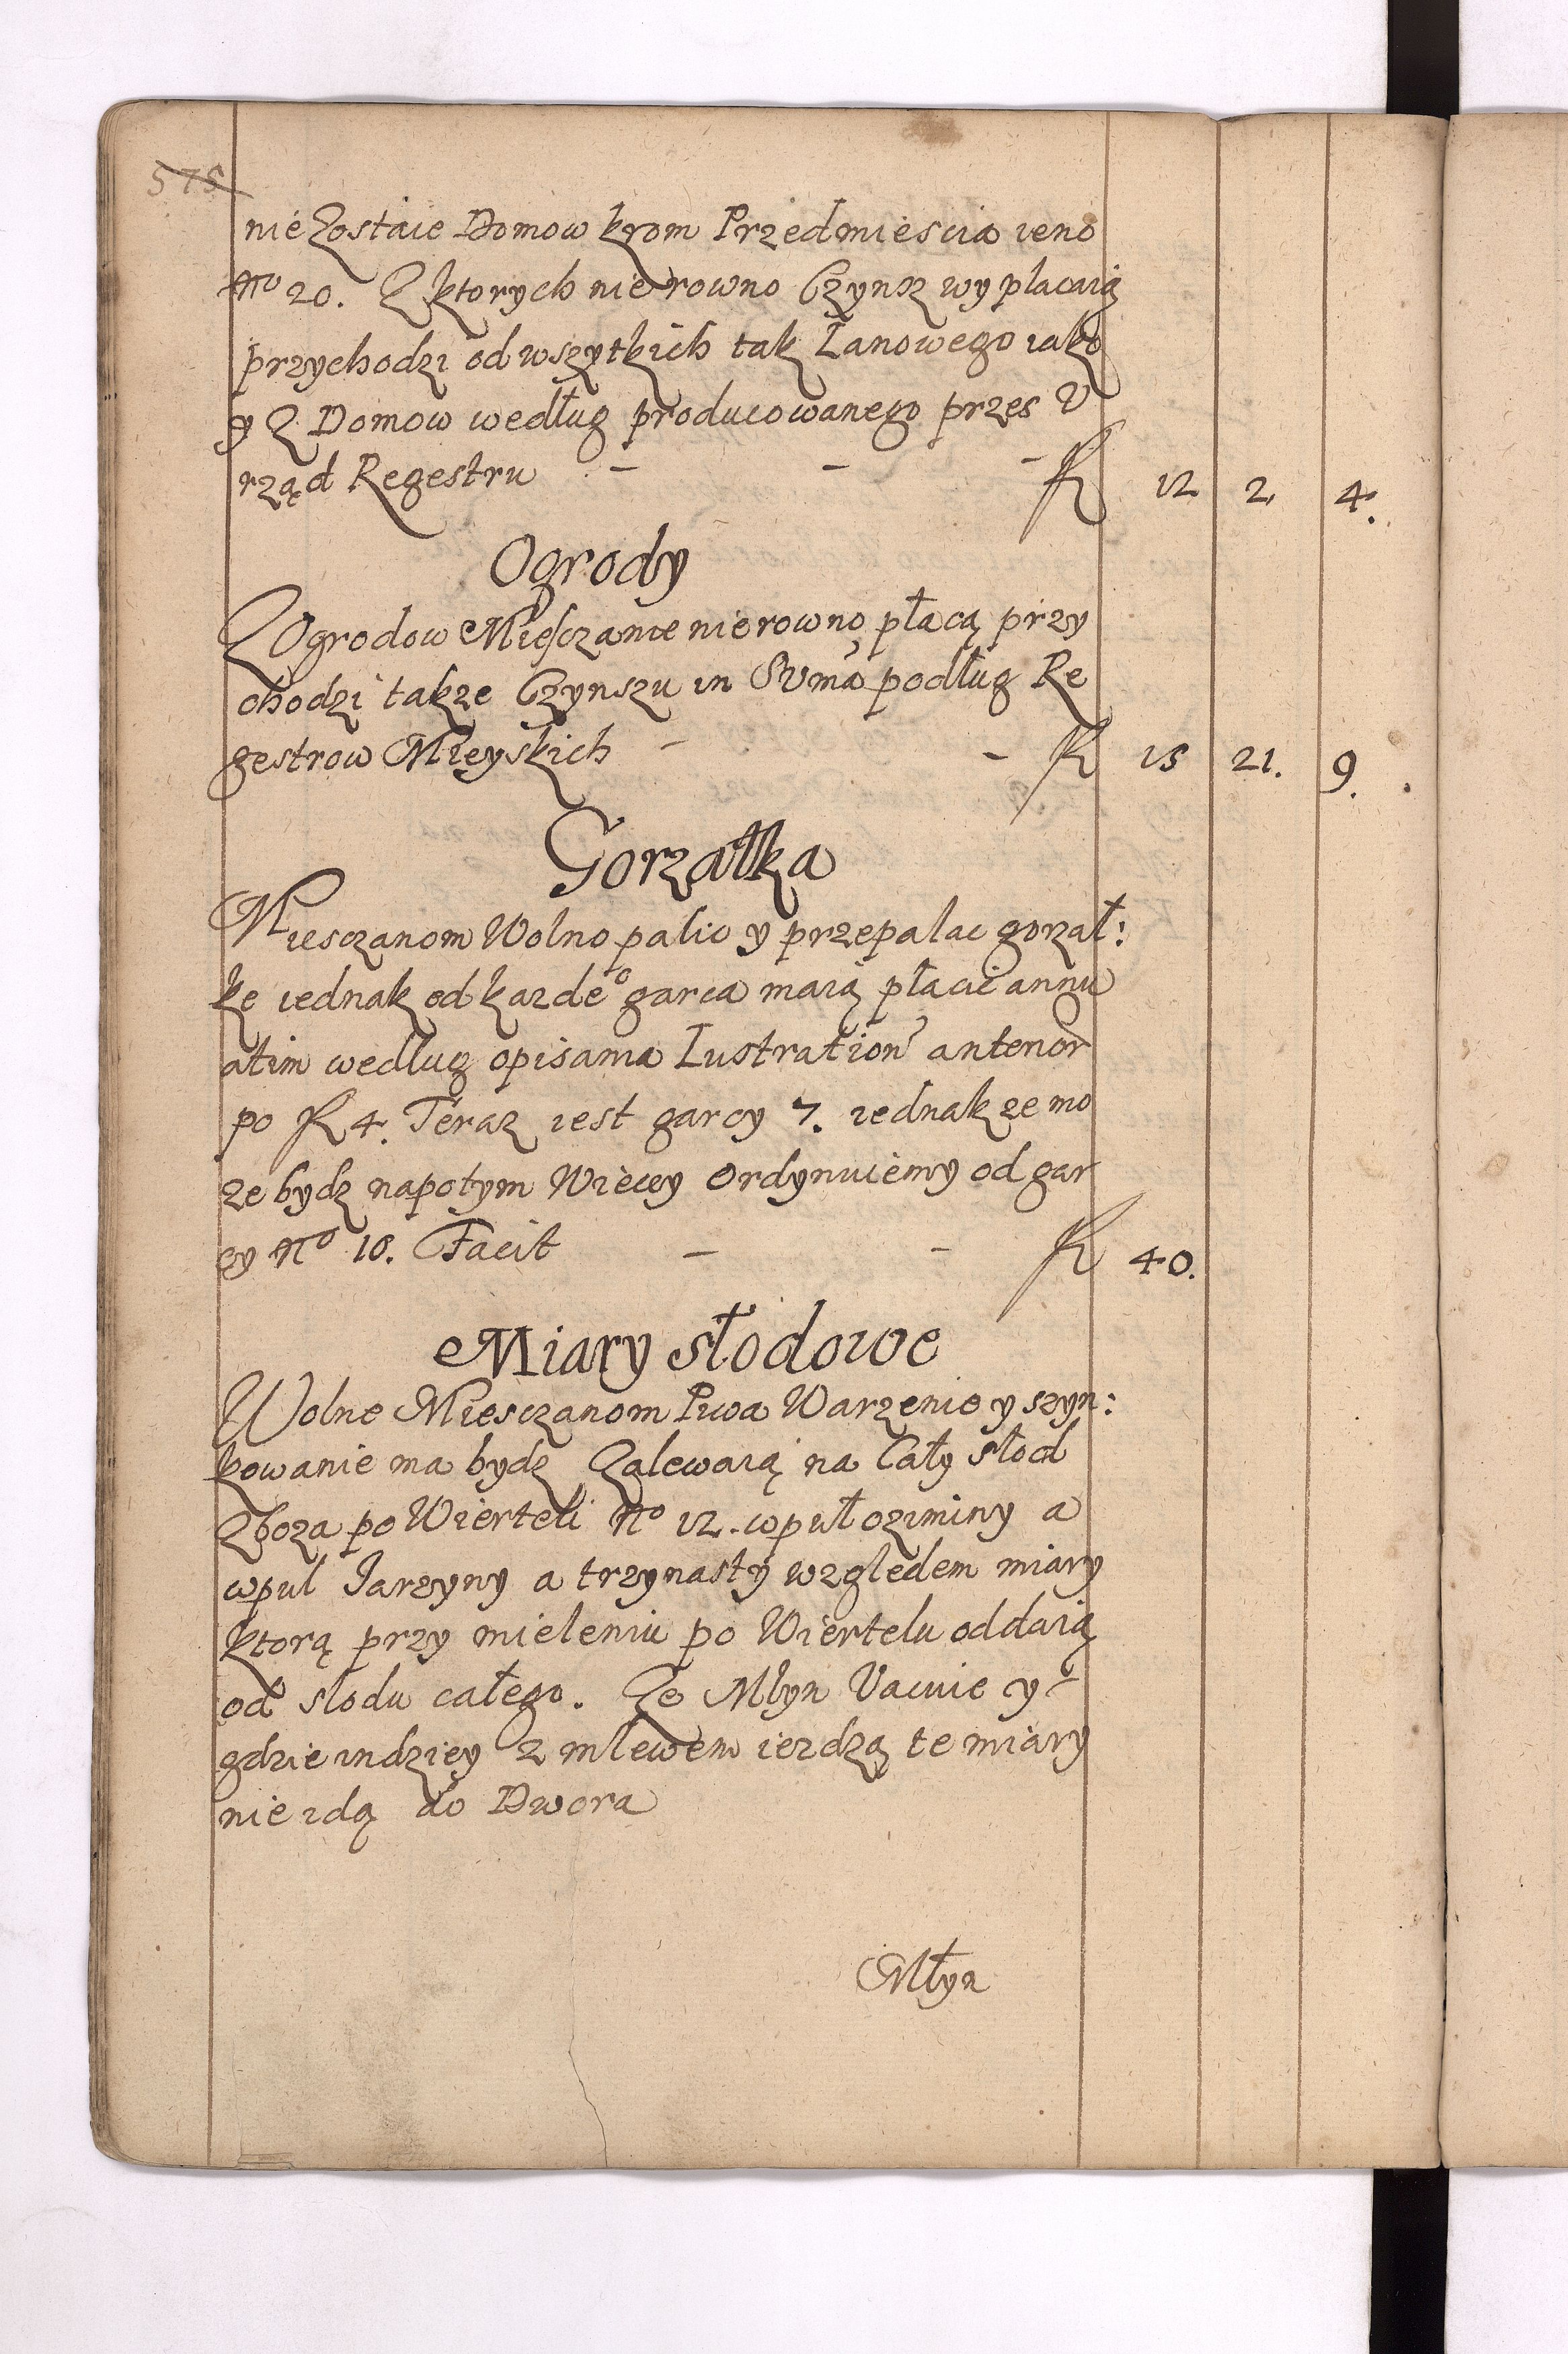 575
nie Zostaie Domow krom Przedmiescia ieno
No 20. Z ktorych nie rowno Czynsz wyplacaią
przychodzi od wszytkich tak Łanowego iako
y Z Domow według producowanego przes V
rząd Regestru - - - fl 12 2 4.
Ogrody
Z Ogrodow Miesczanie nierowno płacą przy
chodzi takze Czynszu in Suma podług Re
gestrow Mieyskich - - fl 15 21. 9.
Gorzałka
Miesczanom Wolno palic y przepalac gorzał:
ke iednak od kazdeo garca maią płacic annu
atim według opisania Lustration anterior
po fl 4. Teraz iest garcy 7. iednak ze mo
ze bydz napotym Wiecey Ordynuiemy od gar
cy No 10. Facit - - fl 40.
Miary słodowe
Wolne Miesczanom Piwa Warzenie y szyn:
kowanie ma bydz Zalewaią na Cały słod
Zboza po Wierteli No 12. wpuł oziminy a
wpul Jarzyny a trzynasty względem miary
ktorą przy mieleniu po Wiertelu oddaią
od słodu całego. Ze Młyn Vacuie y
gdzie indziey z mlewem iezdzą te miary
nie idą do Dwora
Młyn